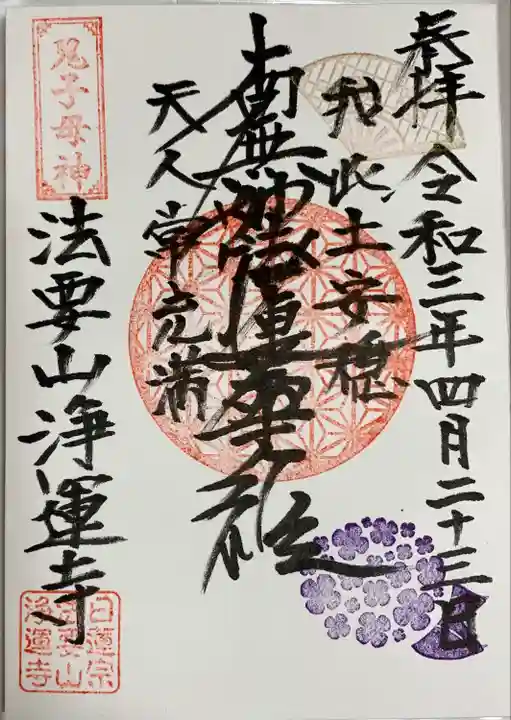 奉拝 令和三年四月二十三日
我此土安穏
南無妙法蓮華経
天人常充満
鬼子母神
法要山浄運寺
日蓮宗
法要山
浄運寺